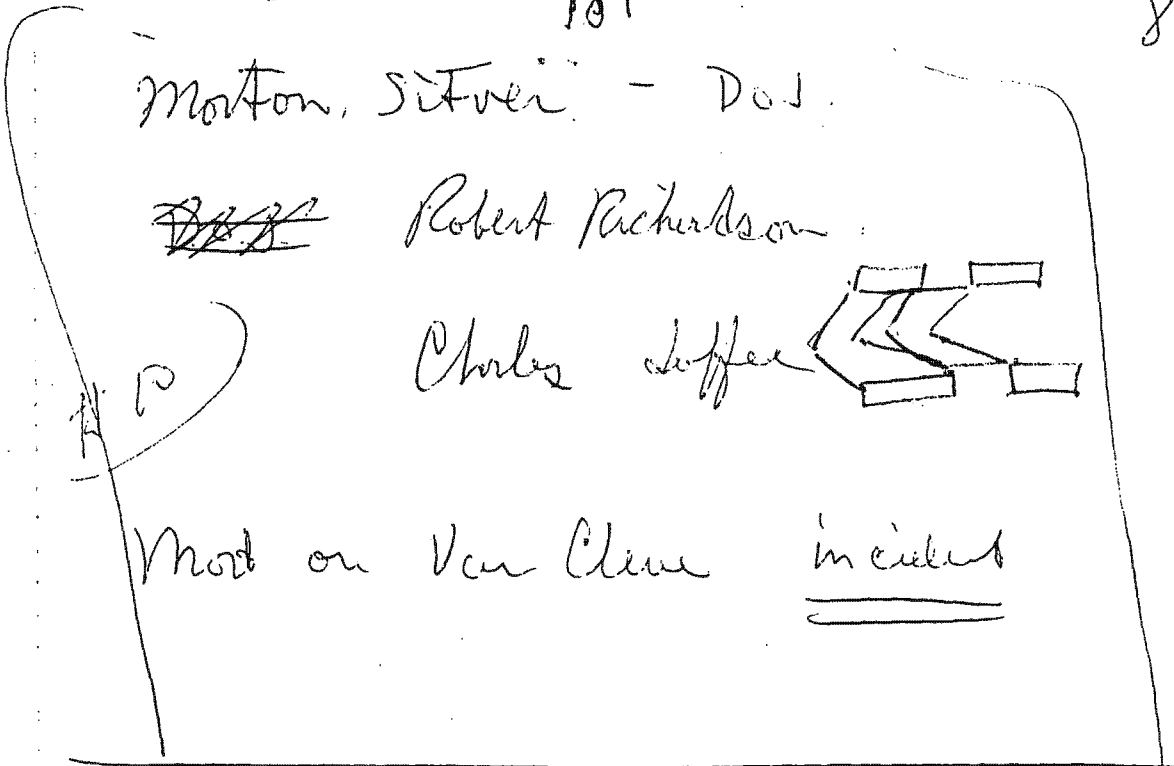 Morton. Sitver - DoJ.
Robert Richardson
Charles
P
Mort on Van Cleve incident